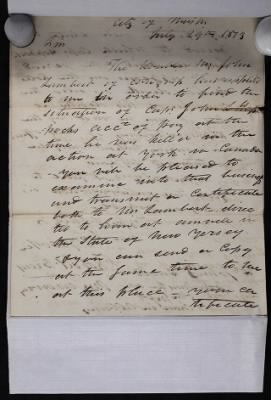 City of Wash
July 29th 1813
Sir
The bearer Mr. John
Lambert of Congress has applied
to me in order to find the
situation of Capt John
pocks accts of pay at the
time he was killed in the
action at York in Canada
you will be pleased to
examine into that business
and transmit a Certificate
back to Mr Lambert direc
ted to him at
the State of New Jersey
you can send a Copy
at the same time to me
at this place your ce
rtificate